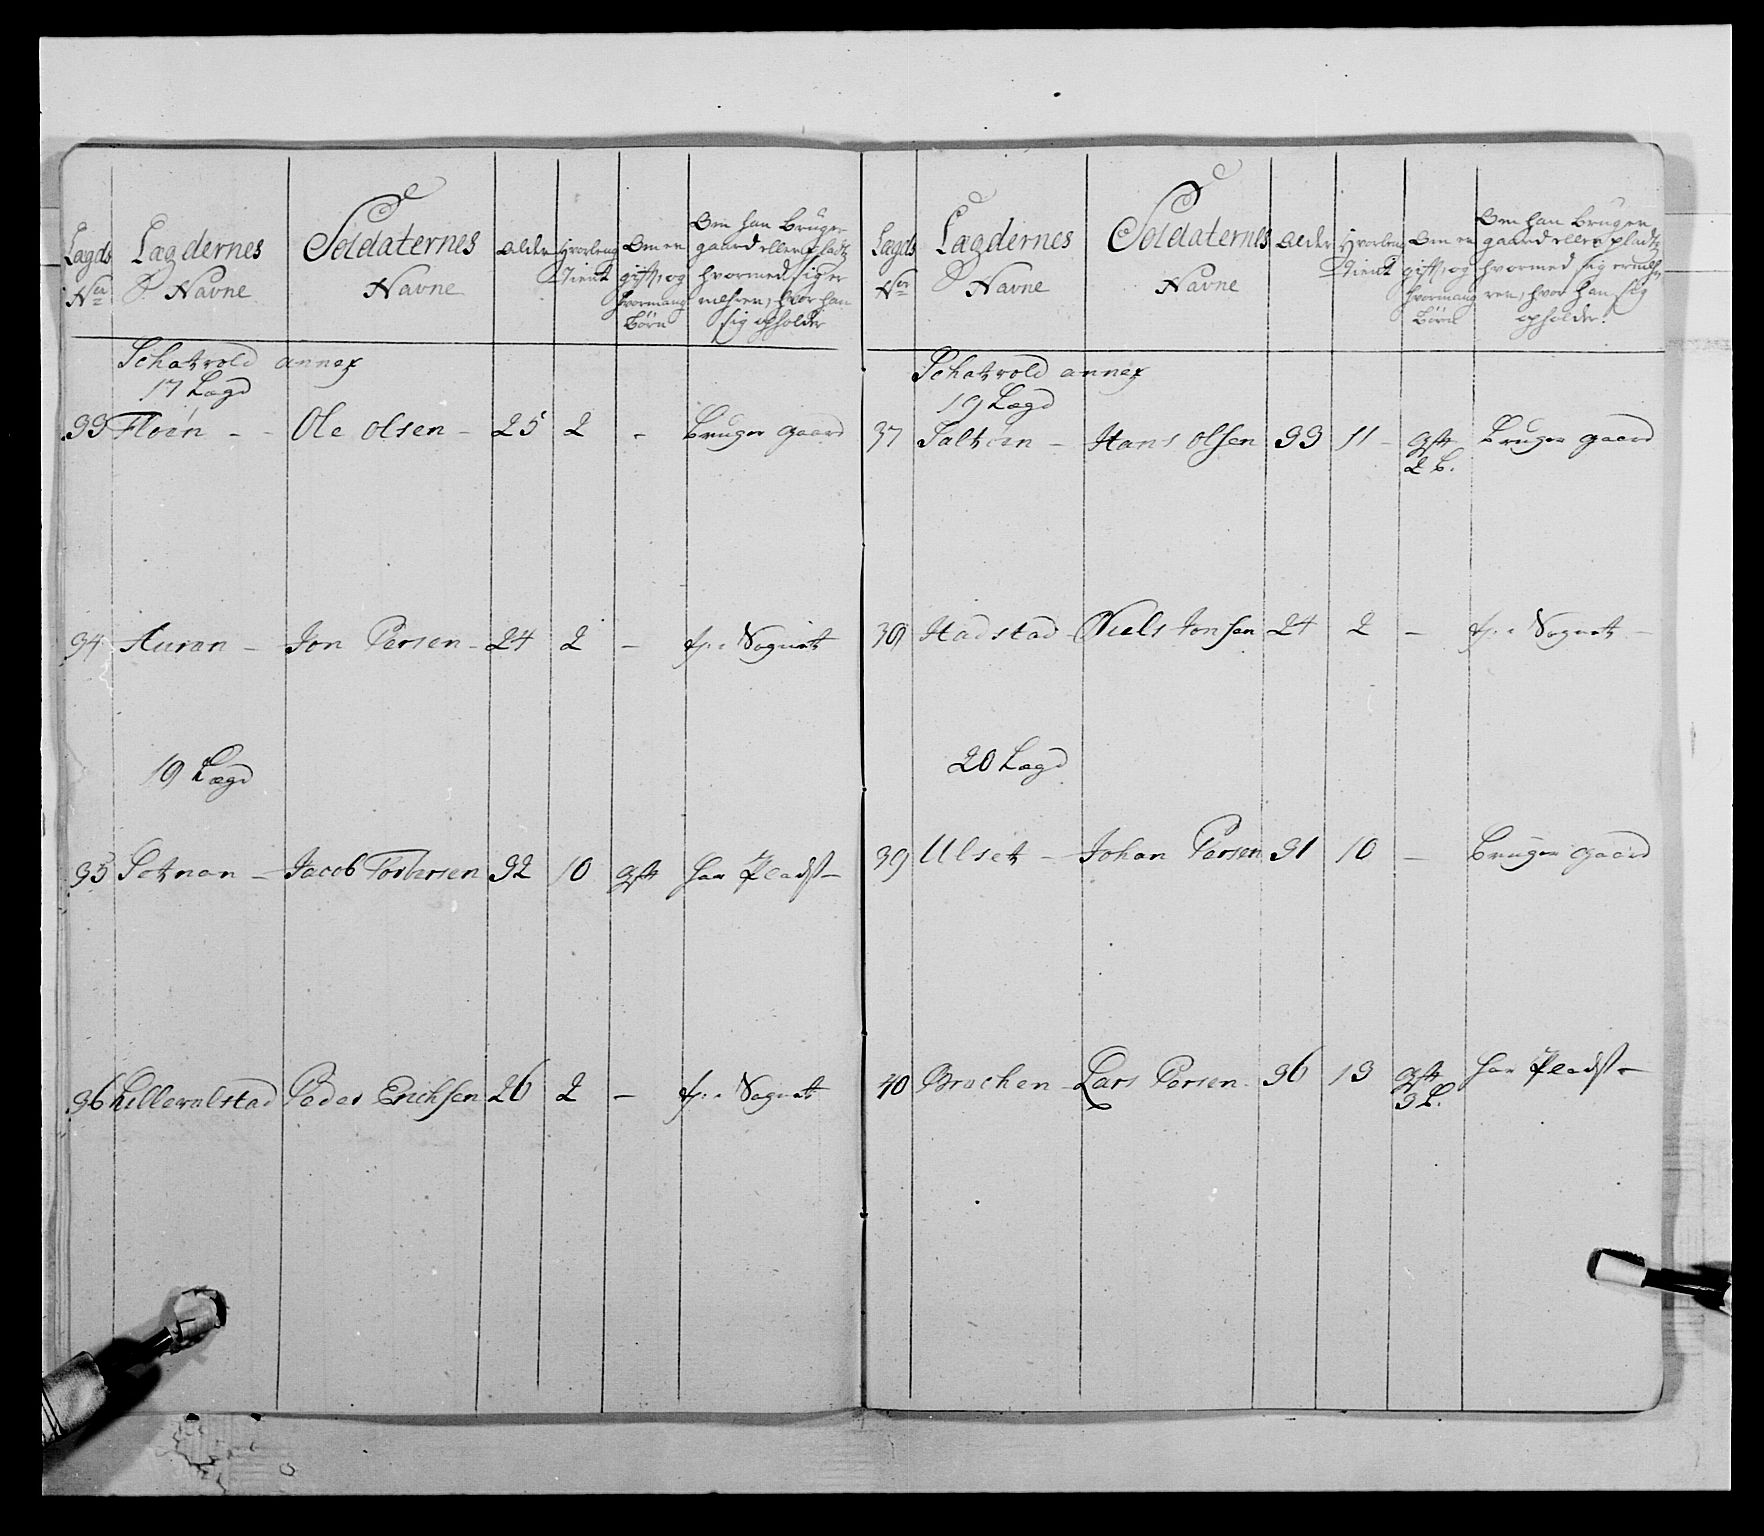 Lægds
No
Lægdernes
Navne
Soldaternes
Navne
Alder
Hvorleng
Tient
Om en
gift, og
hvormang
Børn
Om han Bruger
gaard eller pladtz
hvormed sig er
nehren, hvor han
sig opholder
Schatvold annex
17 Lægd
33 Floen - - Ole Olsen - 25 2 - Bruger gaard
34 Auran - Jon Persen - 24 2 - Sognet
18 Lægd
35 - Jacob 32 10 gift har Pladst -
36 Peder Erichsen 26 2 - Sognet
Lægds
No
Lægdernes
Navne
Soldaternes
Navne
Alder
Hvorleng
Tient
Om en
gift, og
hvormang
Børn
Om han Bruger
gaard eller pladtz
hvormed sig erneh-
ren, hvor han sig
opholder.
Schatvold annex
19 Lægd
37 - Hans Olsen 33 11 - gift Bruger gaard
2 B.
38 Hadstad - Niels Jonsen 24 2 - Sognet -
20 Lægd
39 Ulset - Johan Persen 31 10 - Bruger gaard
40 Brechen - Lars Persen - 36 13 gift har Pladst -
3 B.